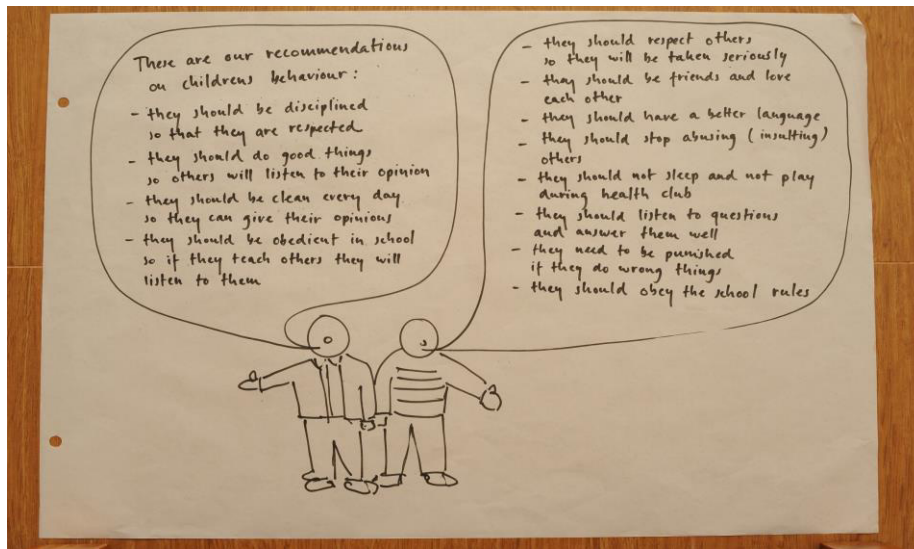 These are our recommendations
on childrens behaviour :
- they should be disciplined
so that they are respected
- they should do good things
so others will listen to their opinion
- they should be clean every day
so they can give their opinions
- they should be obedient in school
so if they teach others they will
listen to them
- they should respect others
so they will be taken seriously
- they should be friends and love
each other
- they should have a better language
- they should stop abusing (insulting)
others
- they should not sleep and not play
during health club
- they should listen to questions
and answer them well
- they need to be punished
if they do wrong things
- they should obey the school rules